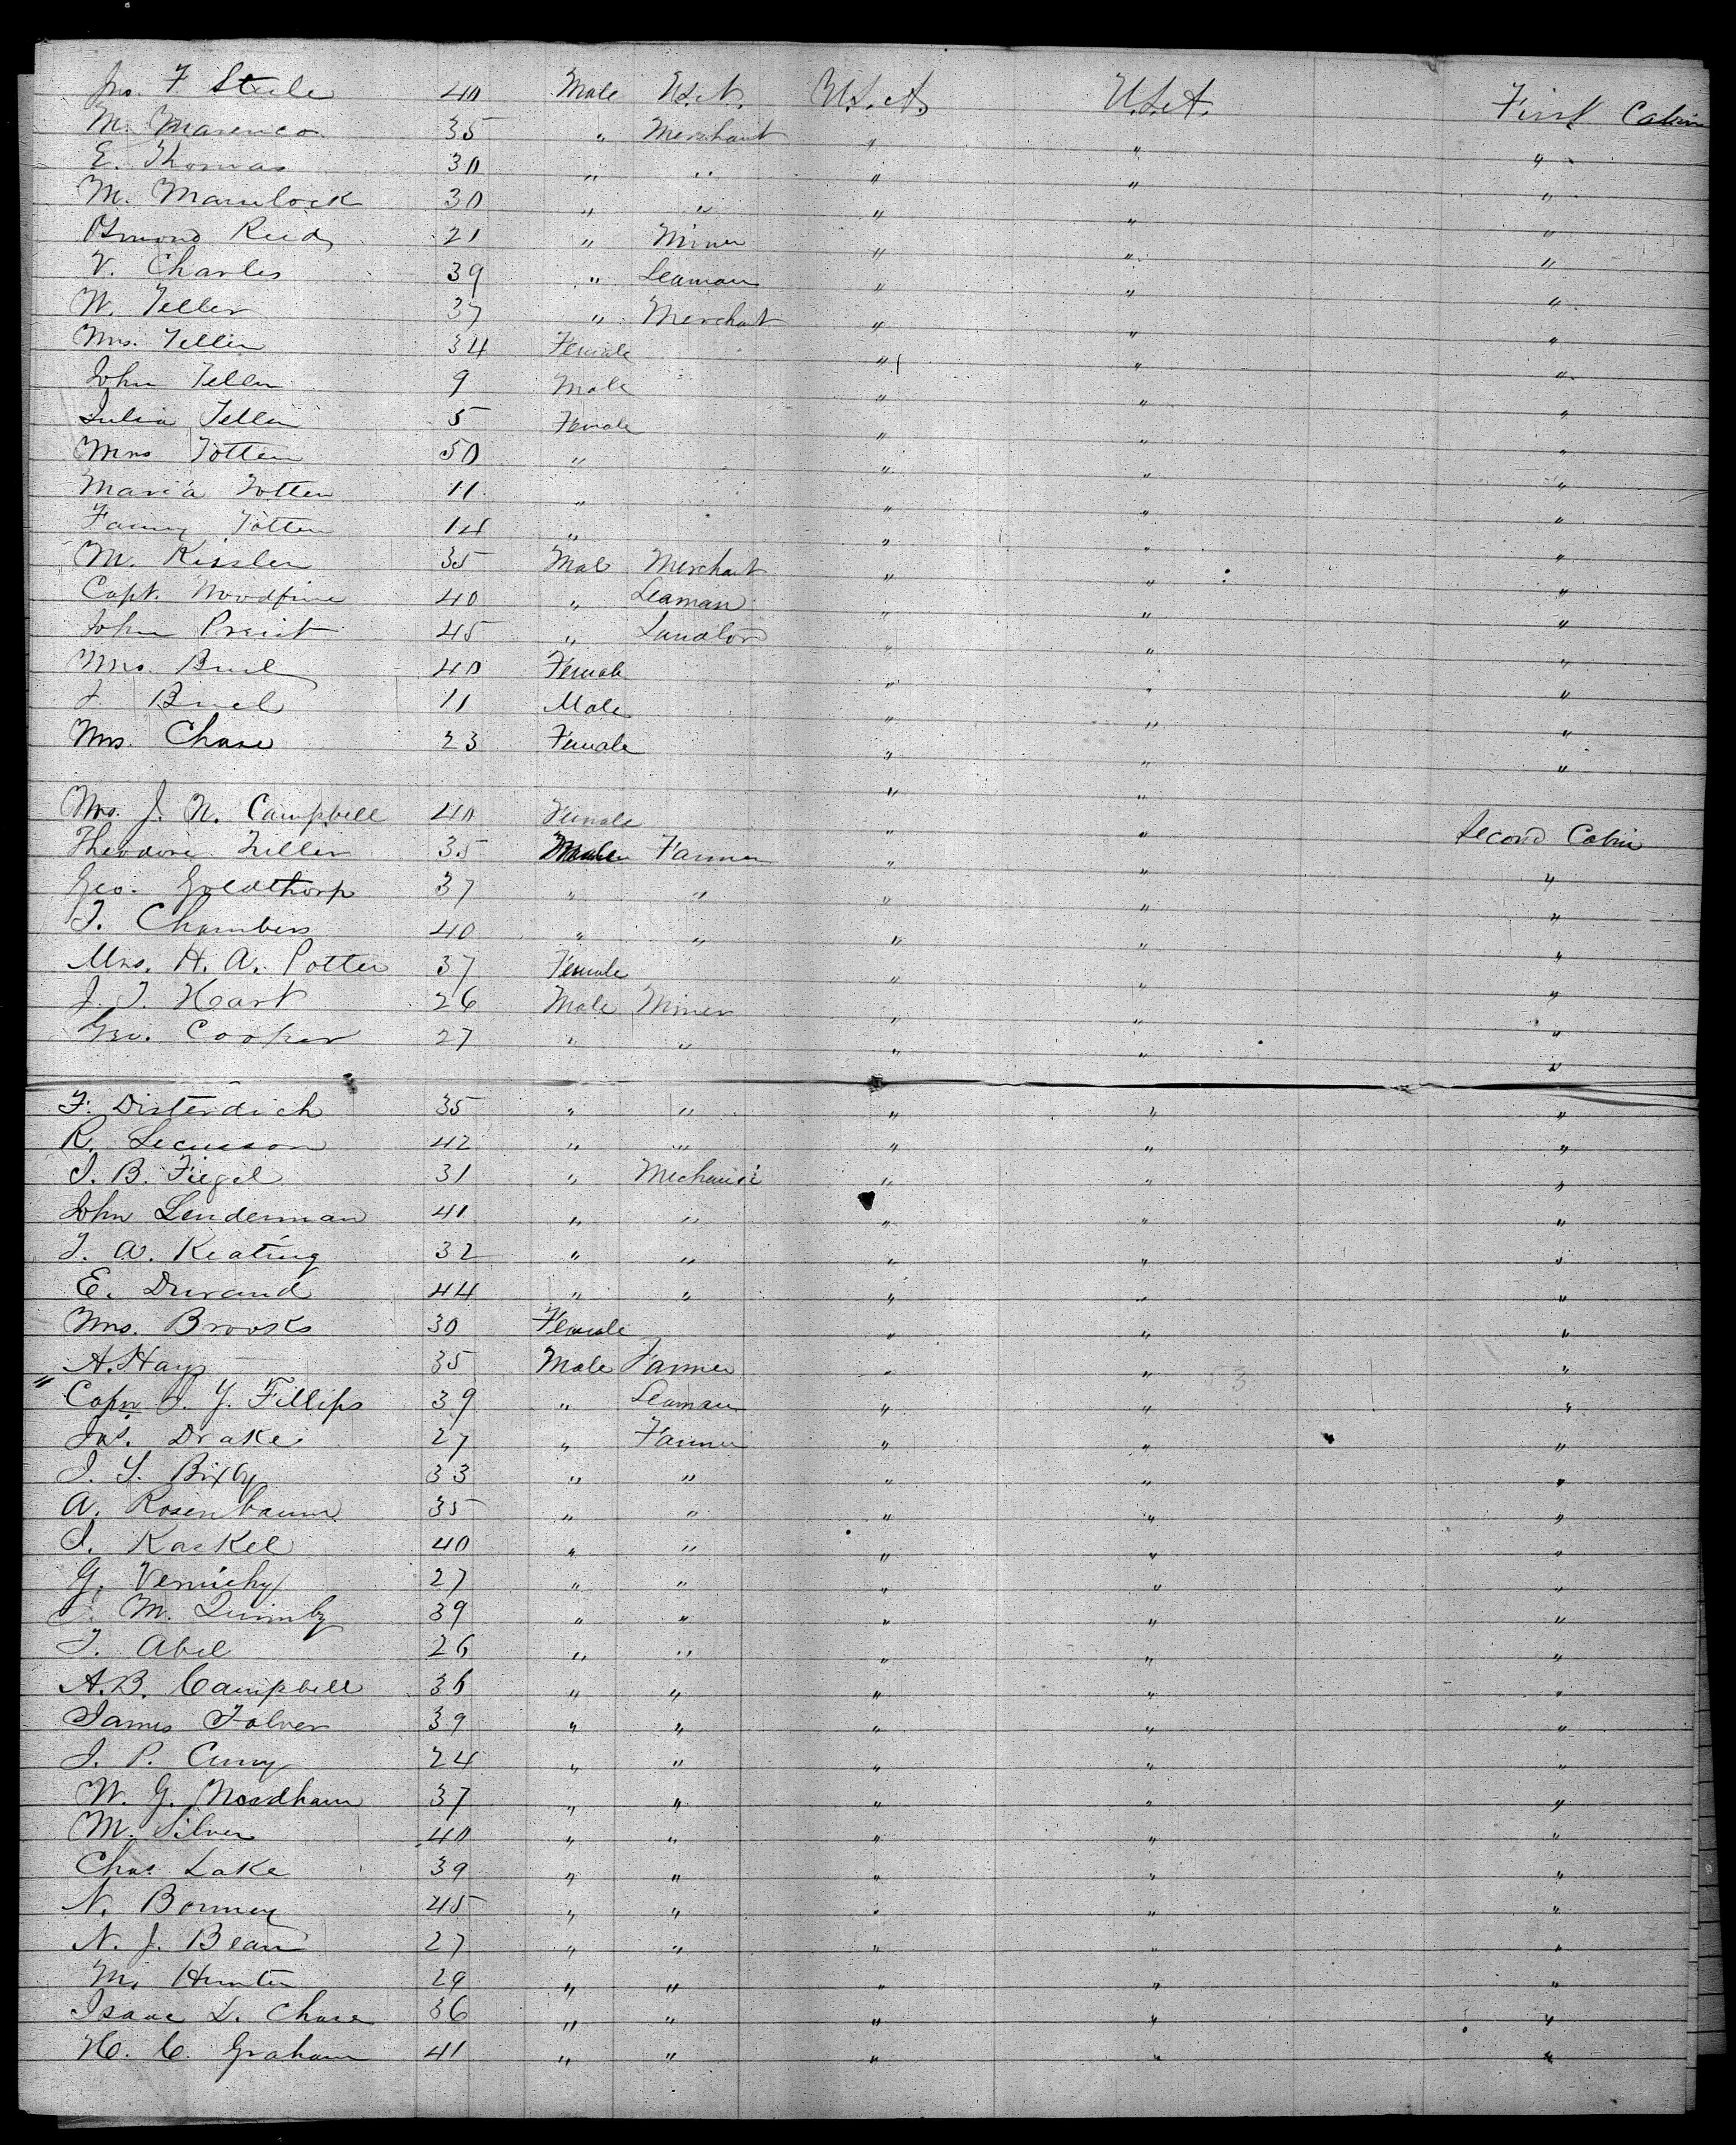 Jno. F Steele 40 Male U.S.N. U.S.A. U.S.A. First Cabin
M. Marenco 35 " Merchant " " "
E. Thomas 30 " " " " "
M. Mamlock 30 " " " " "
Osmond Reed 21 " Miner " " "
V. Charles 39 " Seaman " " "
W. Teller 37 " Merchat " " "
Mrs. Teller 34 Female " " "
John Teller 9 Male " " "
Julia Teller 5 Female " " "
Mrs Totten 50 " " " "
Maria Totten 11 " " " "
Fanny Totten 14 " " " "
M. Kissler 35 Mal Merchant " " "
Capt. Woodfine 40 " Seaman " " "
John 45 " " " "
Mrs. Buel 40 Female " " "
J Buel 11 Male " " "
Mrs. Chase 23 Female " " "
" "
Mrs. J. N. Campbell 40 Female " " Second Cabin
Theodore 35 Male Farmer " " "
Geo. Goldthorp 37 " " " " "
T. Chambers 40 " " " " "
Mrs. H. A. Potter 37 Female " " "
J. T. Heart 26 Male Miner " " "
Geo. Cooper 27 " " " " "
F. Disterdich 35 " " " " "
R. 42 " " " " "
J. B. Fiegel 31 " Mechanic " " "
John Lenderman 41 " " " " "
T. A. Keating 32 " " " " "
E. Durand 44 " " " " "
Mrs. Brooks 30 Female " " "
A. Hays 35 Male Farmer " " "
" Capn J. Y. Fillips 39 " Seaman " " "
Jas. Drake 27 " Farmer " " "
J. Y. Bixby 33 " " " " "
A. Rosenbaum 35 " " " " "
S. Kaskel 40 " " " " "
G. 27 " " " " "
J. M. Quimby 39 " " " " "
T. Abel 26 " " " " "
A. B. Campbell 36 " " " " "
James Tolver 39 " " " " "
J. P. Curry 24 " " " " "
W. G. Woodham 37 " " " " "
M. Silver 40 " " " " "
Chas. Lake 39 " " " " "
N. Bonney 45 " " " " "
N. J. Bean 27 " " " " "
M. Hunter 29 " " " " "
Isaac L. Chase 36 " " " " "
H. C. Graham 41 " " " " "